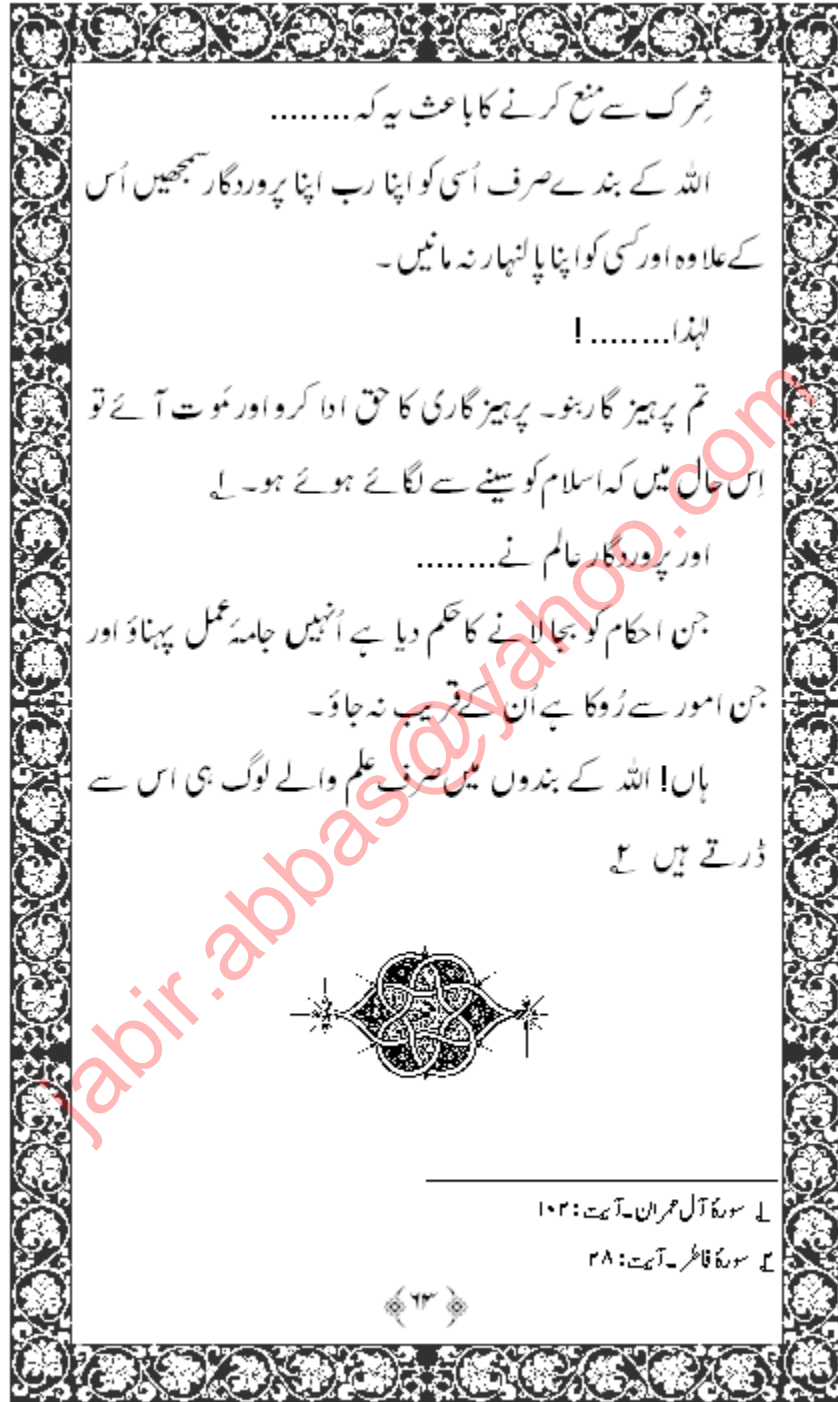 شِرک سے منع کرنے کا باعث یہ کہ........
اللہ کے بندے صرف اُسی کو اپنا رب اپنا پروردگار سمجھیں اُس
کے علاوہ اور کسی کو اپنا پالنہار نہ مانیں۔
لہٰذا........!
تم پرہیز گار بنو۔ پرہیز گاری کا حق ادا کرو اور مَوت آئے تو
اِس حال میں کہ اسلام کو سینے سے لگائے ہوئے ہو۔ ۱؎
اور پروردگار عالم نے........
جن احکام کو بجالانے کا حکم دیا ہے اُنہیں جامۂ عمل پہناؤ اور
جن امور سے رُوکا ہے اُن کے قریب نہ جاؤ۔
ہاں! اللہ کے بندوں میں صرف علم والے لوگ ہی اس سے
ڈرتے ہیں ۲؎
۱؎ سورۂ آل عمران۔ آیت: ۱۰۲
۲؎ سورۂ فاطر۔ آیت: ۲۸
﴿۶۳﴾
jabir.abbas@yahoo.com